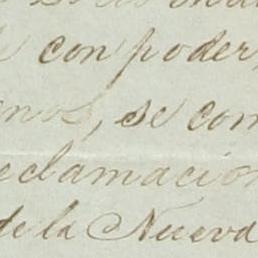 con poder
nos, se com
eclamacion
de la Nueva